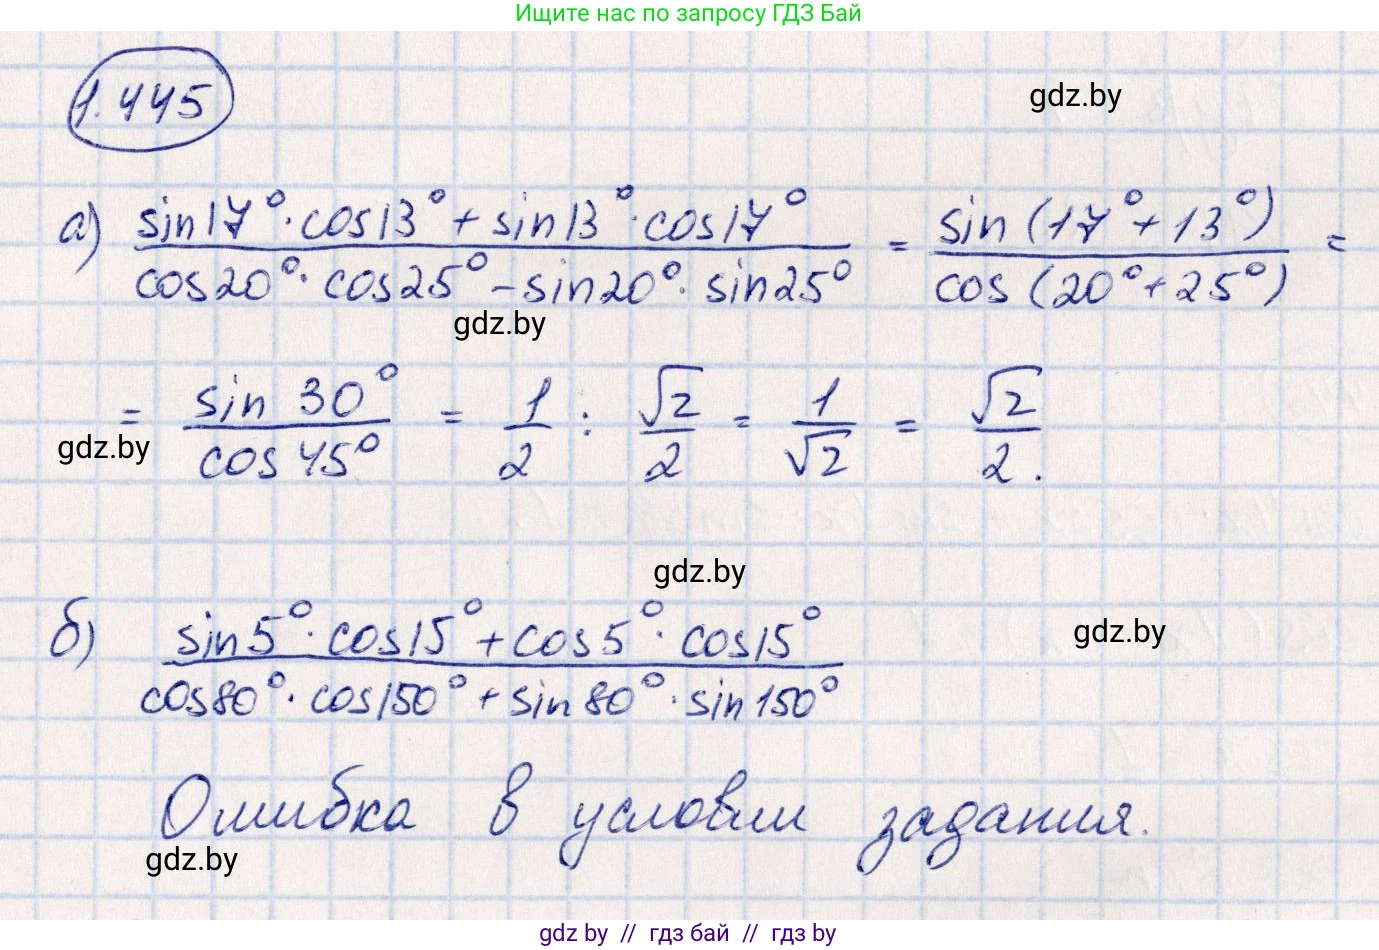 Ищите нас по запросу ГДЗ Бай
1.445
gdz.by
а) sin17°·cos13°+sin13°·cos17° / cos20°·cos25°-sin20°·sin25° = sin(17°+13°) / cos(20°+25°) =
gdz.by
= sin 30° / cos 45° = 1/2 : √2/2 = 1/√2 = √2/2.
gdz.by
gdz.by
б) sin5°·cos15°+cos5°·cos15° / cos80°·cos150°+sin80°·sin150°
gdz.by
Ошибка в условии задания.
gdz.by
gdz by // гдз бай // гдз by